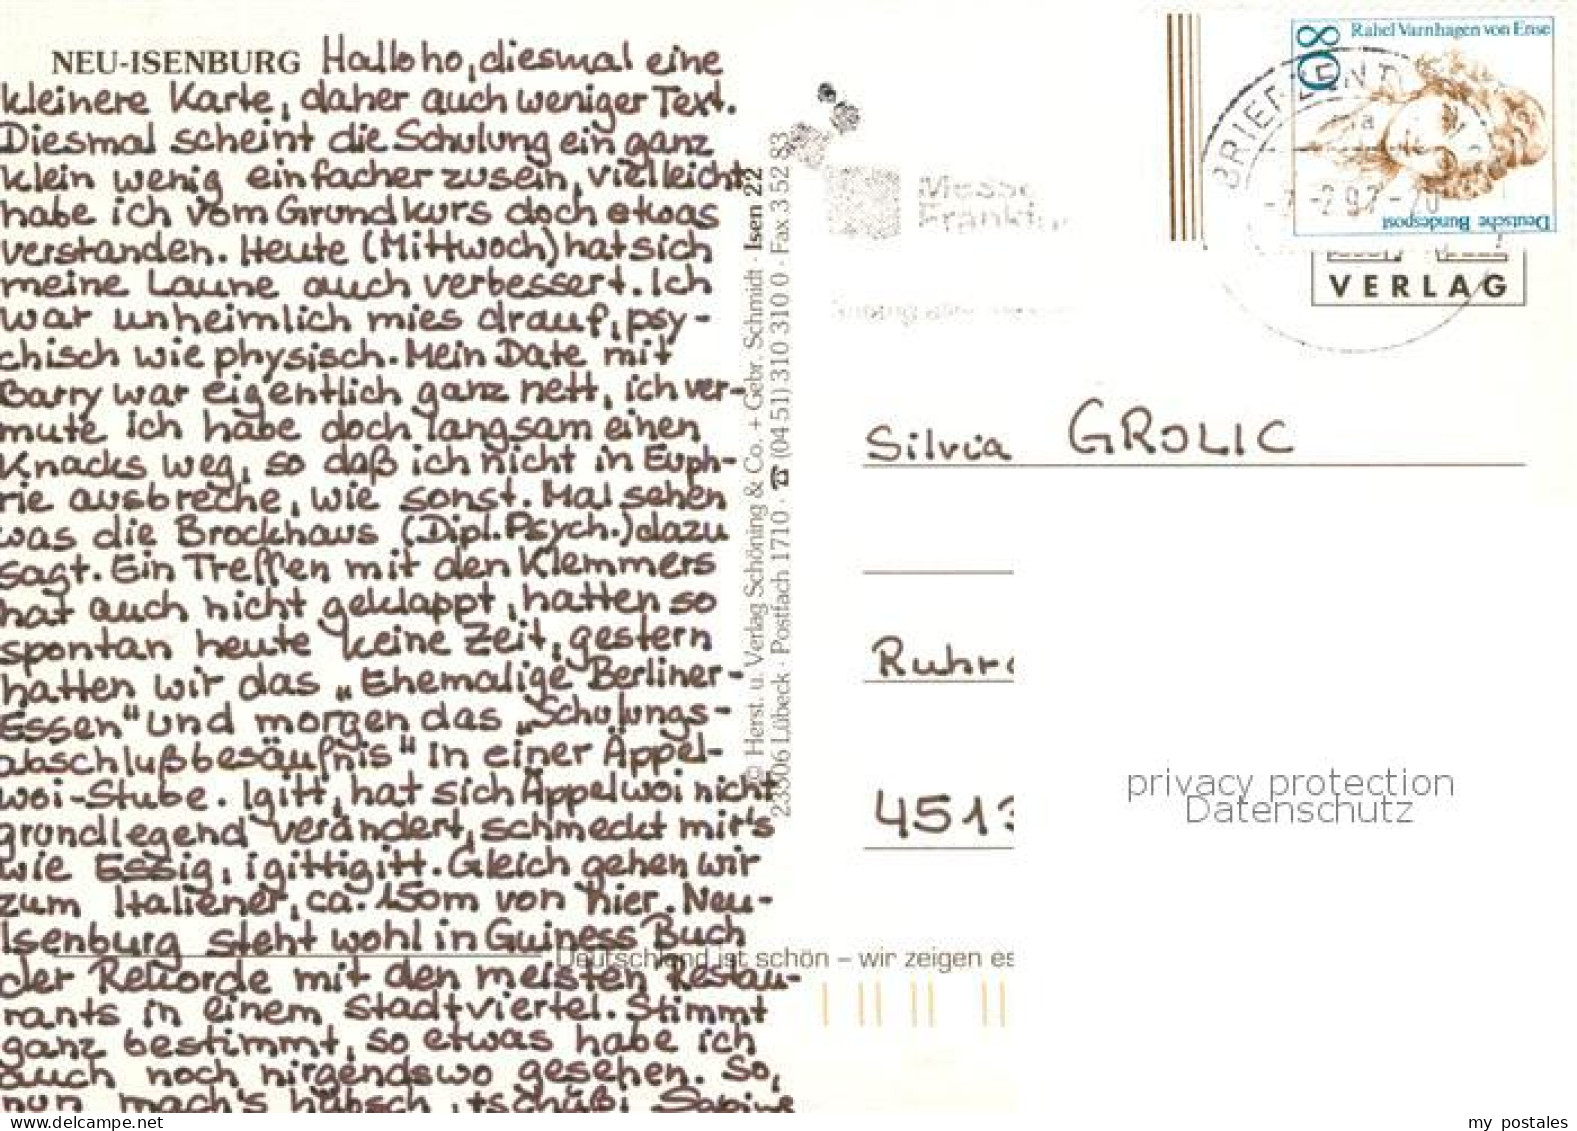 NEU-ISENBURG Halloho, diesmal eine
kleinere Karte, daher auch weniger Text.
Diesmal scheint die Schulung ein ganz
klein wenig einfacher zu sein, vielleicht
habe ich vom Grundkurs doch etwas
verstanden. Heute (Mittwoch) hat sich
meine Laune auch verbessert. Ich
war unheimlich mies drauf, psy-
chisch wie physisch. Mein Date mit
Barry war eigentlich ganz nett, ich ver-
mute ich habe doch langsam einen
Knacks weg, so daß ich nicht in Euph-
rie ausbreche, wie sonst. Mal sehen
was die Brockhaus (Dipl. Psych.) dazu
sagt. Ein Treffen mit den Klemmers
hat auch nicht geklappt, hatten so
spontan heute keine Zeit, gestern
hatten wir das „Ehemalige Berliner-
Essen" und morgen das „Schulungs-
abschlußbesäufnis" in einer Äppel-
woi-Stube. Igitt, hat sich Äppelwoi nicht
grundlegend verändert, schmeckt mir's
wie Essig, igittigitt. Gleich gehen wir
zum Italiener, ca. 150m von hier. Neu-
Isenburg steht wohl in Guiness Buch
der Rekorde mit den meisten Restau-
rants in einem Stadtviertel. Stimmt
ganz bestimmt, so etwas habe ich
auch noch nirgendswo gesehen. So,
nun mach's hübsch, tschüßi Sabine
© Herst. u. Verlag Schöning & Co. + Gebr. Schmidt · Isen 22
23506 Lübeck · Postfach 1710 · ☎ (04 51) 310 310 0 · Fax 3 52 83
Deutschland ist schön – wir zeigen es
Messe
Frankfu
BRIEFZENT
a
-7.-2.97-20
80
Rahel Varnhagen von Ense
Deutsche Bundespost
VERLAG
Silvia GROLIC
Ruhr
4513
privacy protection
Datenschutz
my postales